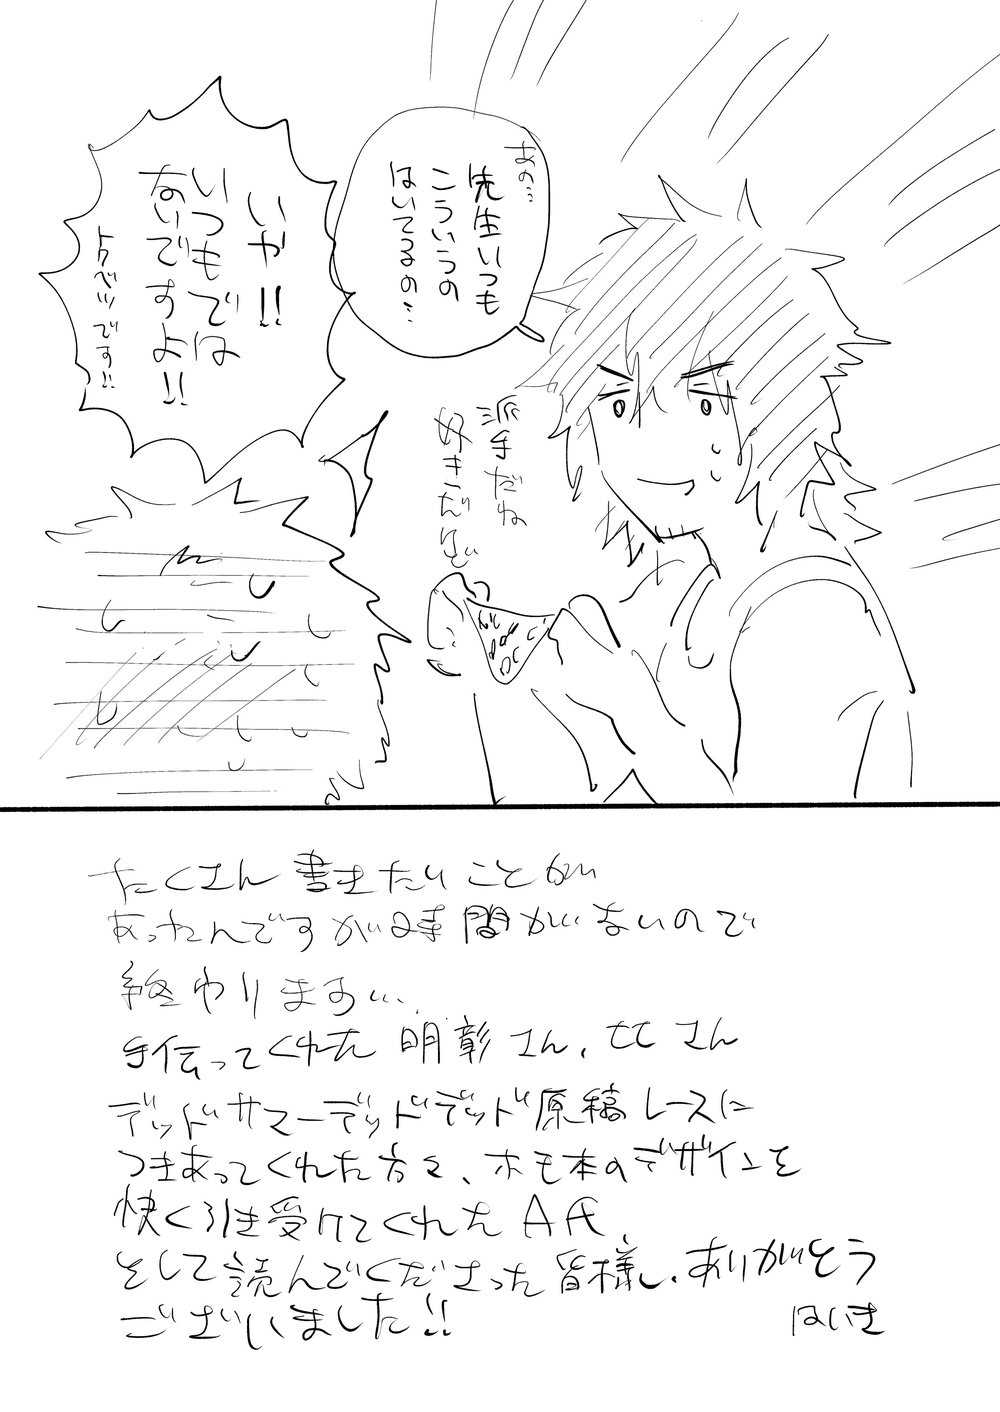 あの…
先生いつも
こういうの
はいてるの…
いや!!
いつもでは
ないですよ!!
トクベツです!!
派手だね
好きだけど
たくさん書きたいことが
あったんですが時間がないので
終わります…
手伝ってくれた明彰さん、ヒヒさん
デッドサマーデッドデッド原稿レースに
つきあってくれた方々、ホモ本のデザインを
快く引き受けてくれたA氏、
そして読んでくださった皆様、ありがとう
ございました!!
はいき